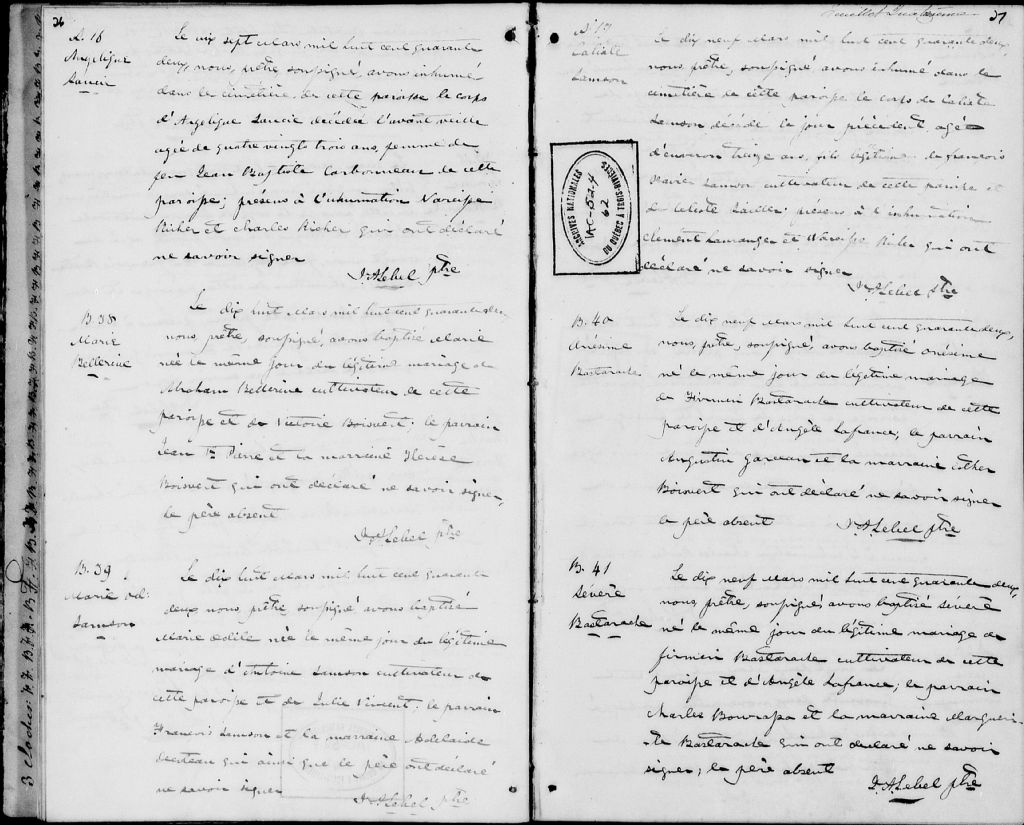 26
S. 16
Angelique
Lancie
Le dix sept Mars mil huit cent quarante
deux, nous, prêtre, soussigné, avons inhumé
dans le cimetière de cette paroisse le corps
d'Angelique Lancie decédée l'avant veille
agée de quatre vingts trois ans, femme de
feu Jean Baptiste Carbonneau de cette
paroisse; présens à l'inhumation Narcisse
Richer et Charles Richer qui ont déclaré
ne savoir signer
J. A. Lebel ptre
B. 38
Marie
Bellerive
Le dix huit Mars mil huit cent quarante deux,
nous, prêtre, soussigné, avons baptisé Marie
née le même jour du légitime mariage de
Abraham Bellerive cultivateur de cette
paroisse et de Victoire Boisvert; le parrain
Jean Bte Pierre et la marraine Thérèse
Boisvert qui ont déclaré ne savoir signer,
le père absent
J. A. Lebel ptre
B. 39
Marie Od:
Samson
Le dix huit Mars mil huit cent quarante
deux nous, prêtre, soussigné avons baptisé
Marie Odile née le même jour du légitime
mariage d'Antoine Samson cultivateur de
cette paroisse et de Julie Vincent; le parrain
François Samson et la marraine Adelaide
qui ainsi que le père ont déclaré
ne savoir signer
J. A. Lebel ptre
Feuillet Quatorzième
27
S. 17
Caliste
Samson
Le dix neuf Mars mil huit cent quarante deux,
nous, prêtre, soussigné avons inhumé dans le
cimetière de cette paroisse le corps de Caliste
Samson décédé le jour précédent, agé
d'environ treize ans, fils légitime de François
Xavier Samson cultivateur de cette paroisse et
de Celeste; présens à l'inhumation
Clement Lamrange et Narcisse Richer qui ont
déclaré ne savoir signer
J. A. Lebel ptre
ARCHIVES NATIONALES
DU QUÉBEC À TROIS-RIVIÈRES
62
B. 40
Onésime
Bastarache
Le dix neuf Mars mil huit cent quarante deux,
nous, prêtre, soussigné avons baptisé Onésime
né le même jour du légitime mariage
de Firmin Bastarache cultivateur de cette
paroisse et d'Angèle Lafrance; le parrain
Augustin et la marraine Esther
Boisvert qui ont déclaré ne savoir signer
le père absent
J. A. Lebel ptre
B. 41
Sévère
Bastarache
Le dix neuf Mars mil huit cent quarante deux,
nous, prêtre, soussigné avons baptisé Sévère
né le même jour du légitime mariage de
Firmin Bastarache cultivateur de cette
paroisse et d'Angèle Lafrance; le parrain
Charles Bourassa et la marraine Margueri-
te Bastarache qui ont déclaré ne savoir
signer; le père absent
J. A. Lebel ptre